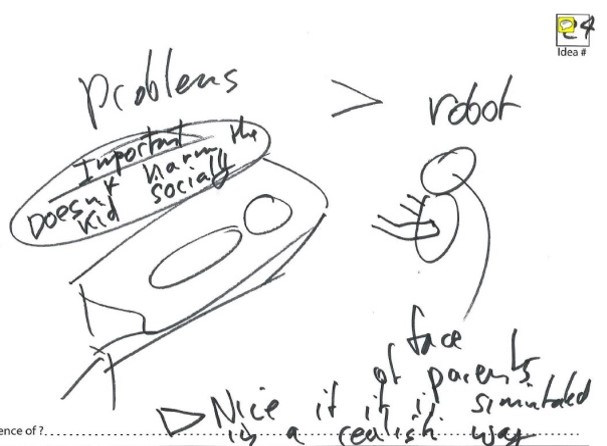 e4
Idea #
Problems > robot
Important
Doesn't harm the
kid socially
face
of parents
Nice if it is simulated
in a realish way
ence of ?